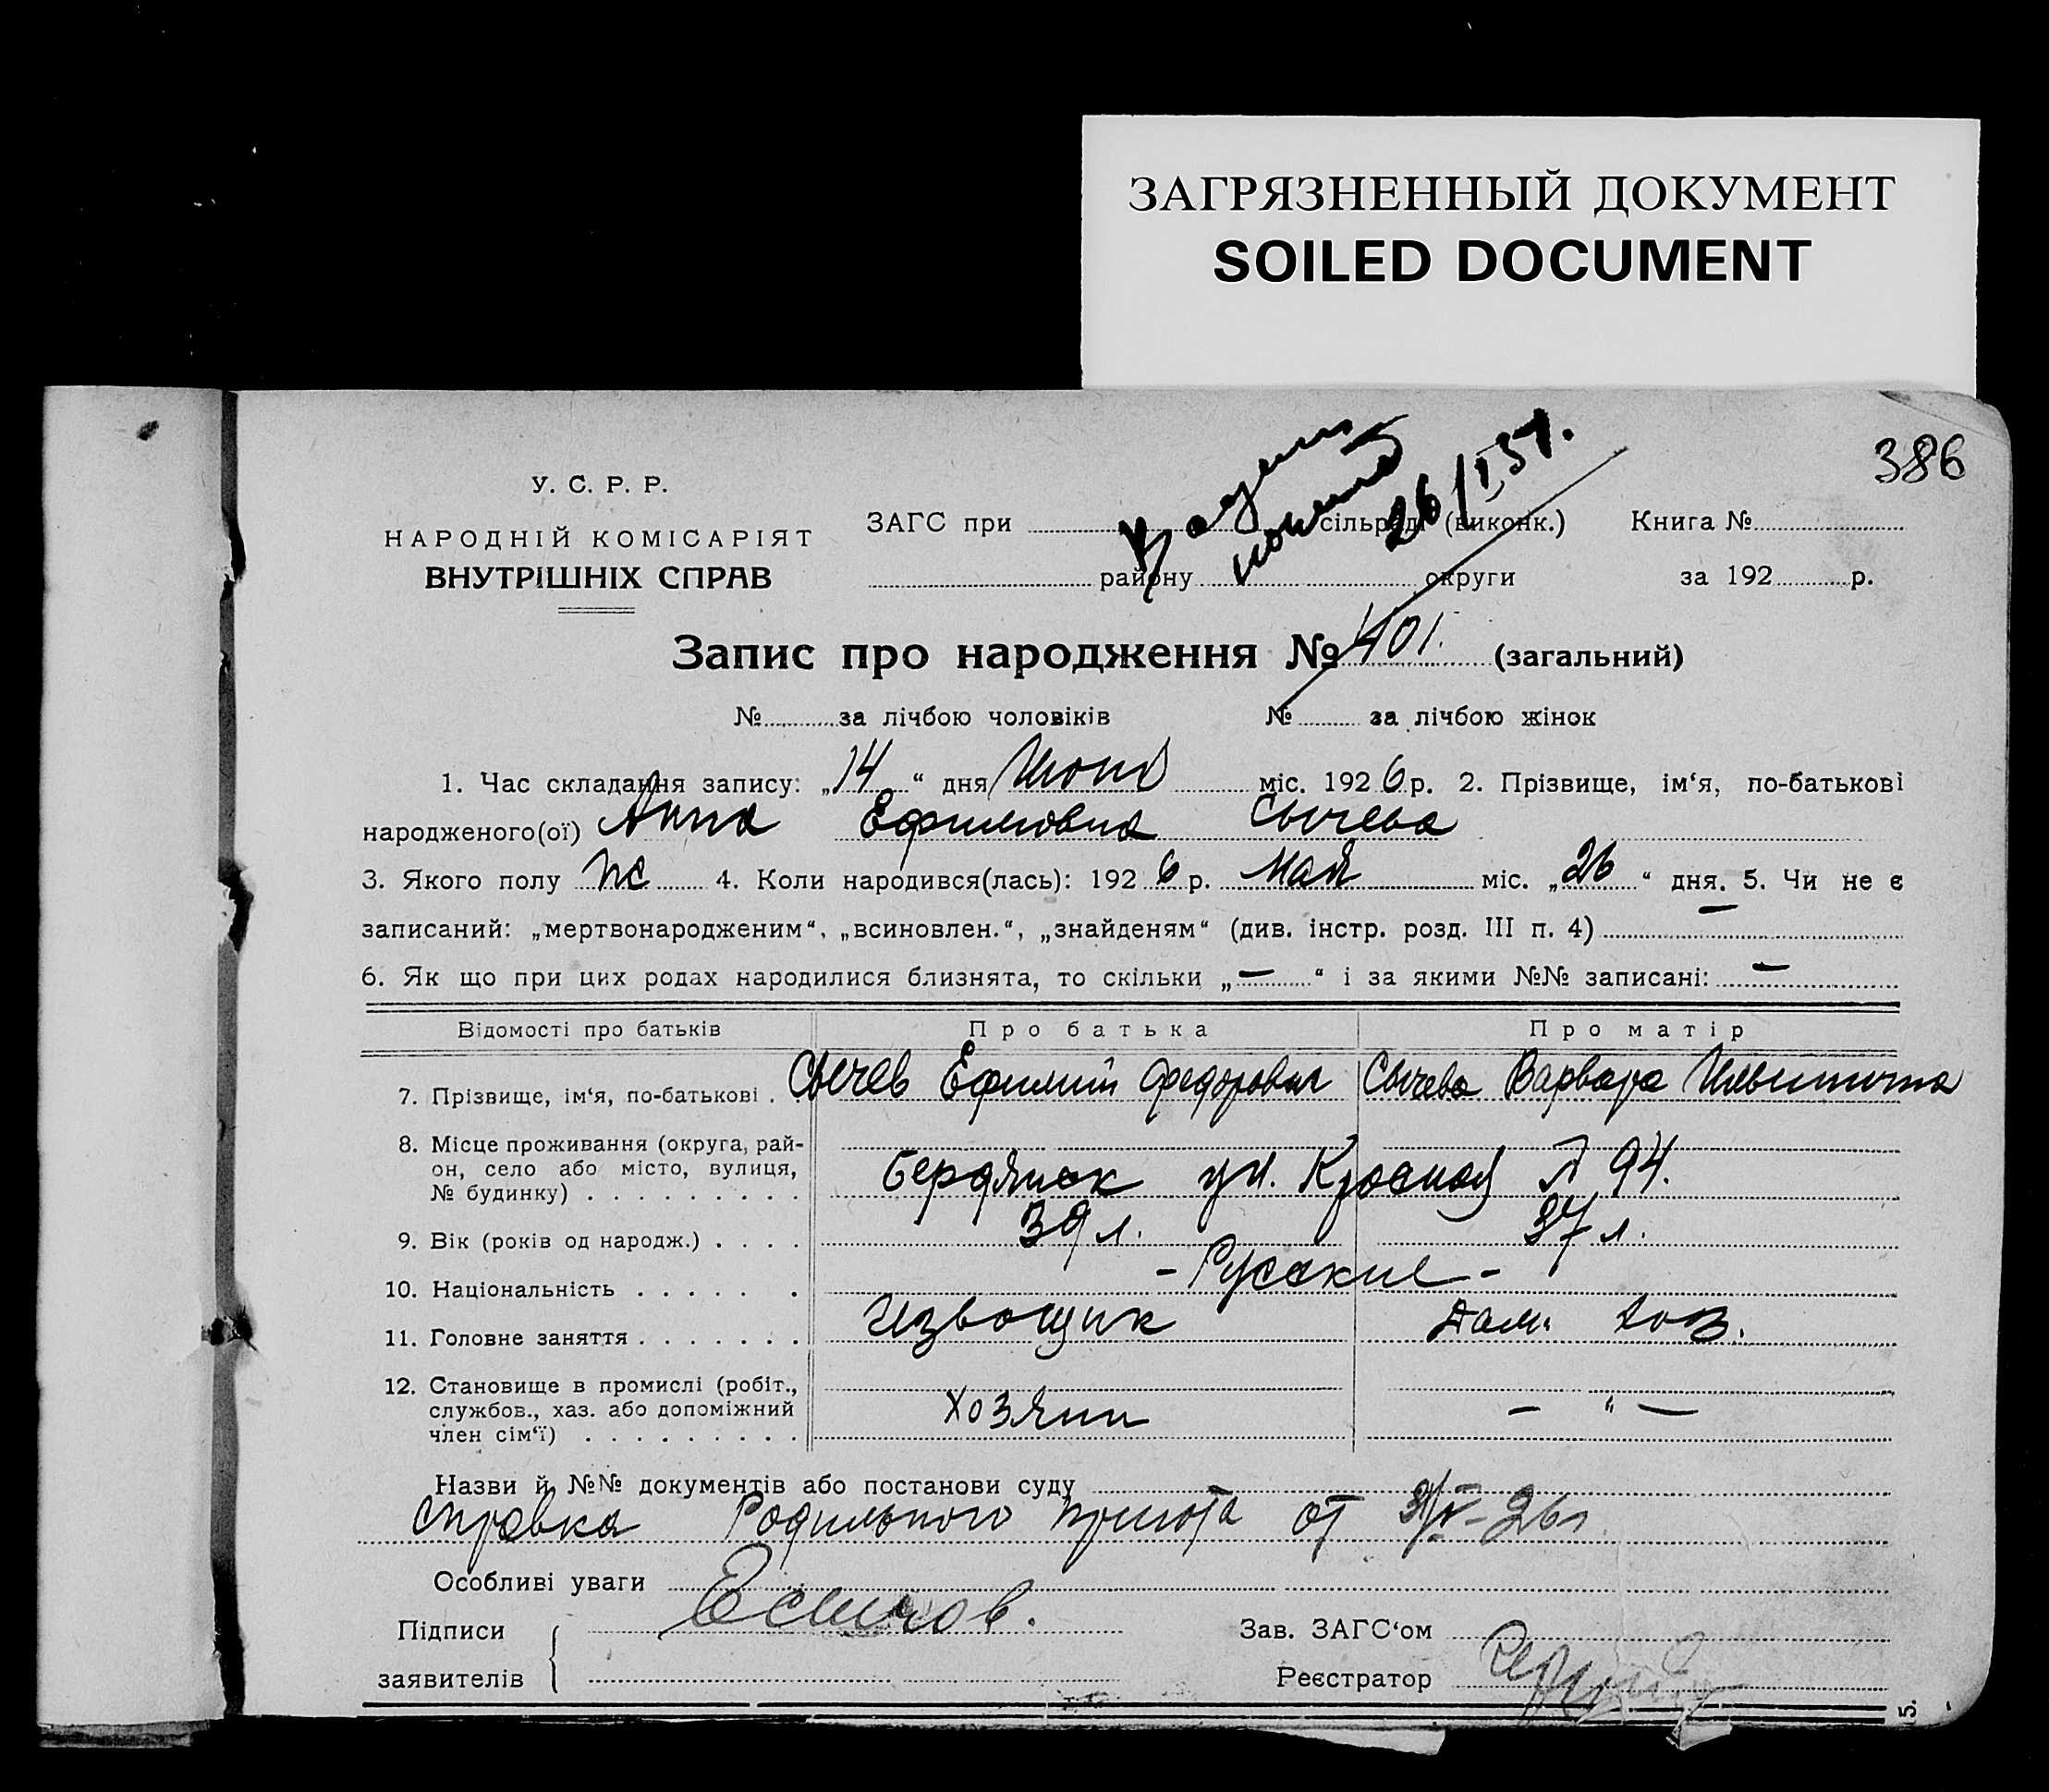 ЗАГРЯЗНЕННЫЙ ДОКУМЕНТ
SOILED DOCUMENT
386
26/I 51.
У. С. Р. Р.
НАРОДНІЙ КОМІСАРІЯТ
ВНУТРІШНІХ СПРАВ
ЗАГС при сільради (виконк.) Книга №
району округи за 192 р.
Запис про народження № 401. (загальний)
№ за лічбою чоловіків № за лічбою жінок
1. Час складання запису: „14“ дня Июня міс. 1926 р. 2. Прізвище, ім‘я, по-батькові
народженого(ої) Анна Ефимовна Сычева
3. Якого полу ж 4. Коли народився(лась): 1926 р. Мая міс. „26“ дня. 5. Чи не є
записаний: „мертвонародженим“, „всиновлен.“, „знайденям“ (див. інстр. розд. III п. 4) —
6. Як що при цих родах народилися близнята, то скільки „—“ і за якими №№ записані: —
Відомості про батьків Про батька Про матір
7. Прізвище, ім‘я, по-батькові . Сычев Ефимий Федорович Сычева Варвара Ильинична
8. Місце проживання (округа, рай-
он, село або місто, вулиця,
№ будинку) . . . . . . . . . Бердянск ул. Красная № 94.
9. Вік (років од народж.) . . . . 39 л. 37 л.
10. Національність . . . . . . - Русские -
11. Головне заняття . . . . . . . Извощик Дом. хоз.
12. Становище в промислі (робіт.,
службов., хаз. або допоміжний
член сім‘ї) . . . . . . . . . Хозяин — " —
Назви й №№ документів або постанови суду
Справка Родильного приюта от -26 г.
Особливі уваги
Підписи Зав. ЗАГС‘ом
заявителів Реєстратор
5